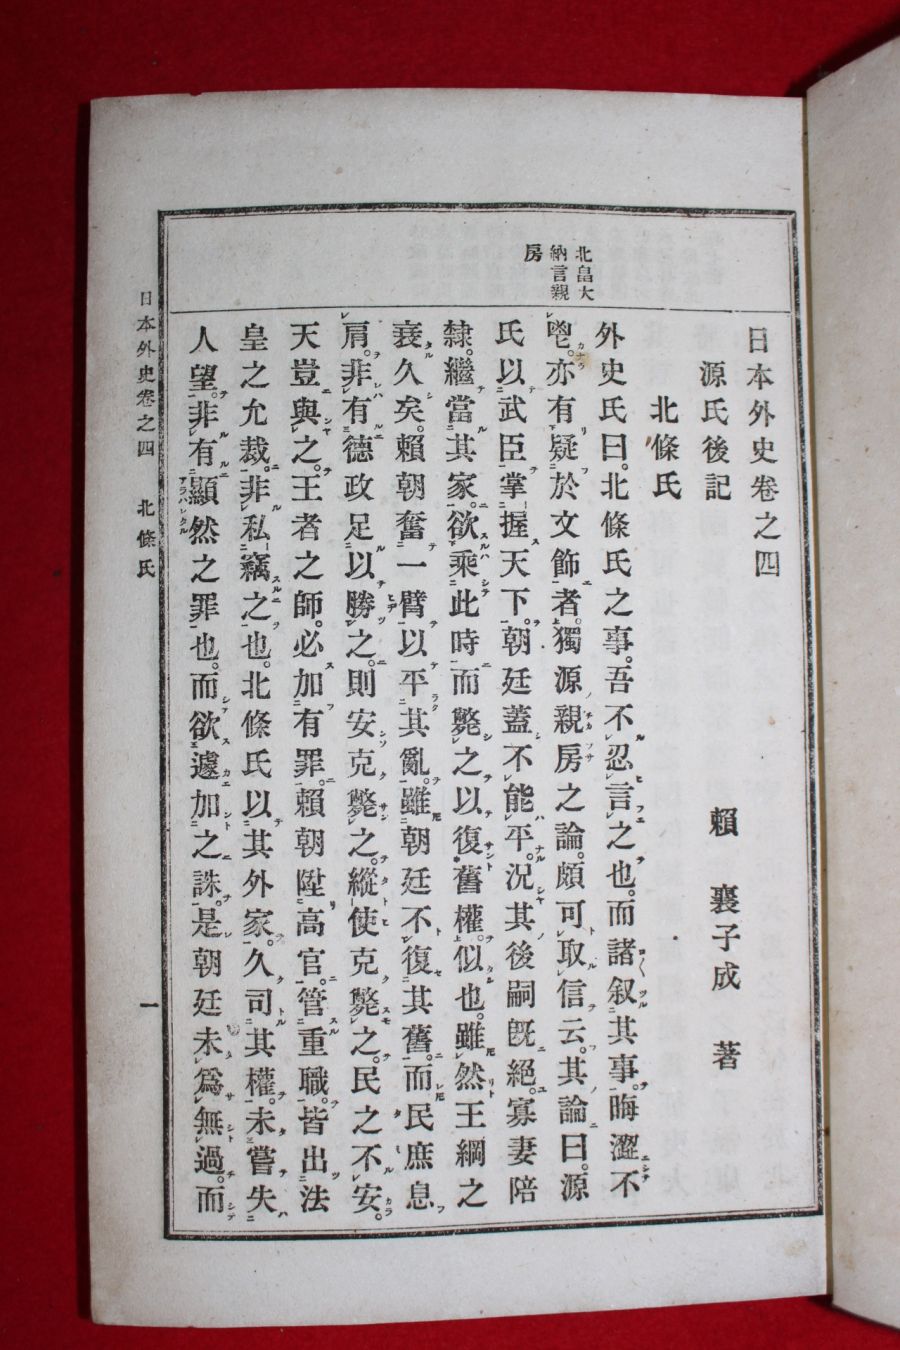 日本外史卷之四
源氏後記
北條氏
賴 襄子成 著
北畠大
納言親
房
外史氏曰。北條氏之事。吾不忍言之也。而諸叙其事。晦澀不
鬯。亦有疑於文飾者。獨源親房之論。頗可取信云。其論曰。源
氏以武臣掌握天下。朝廷蓋不能平。況其後嗣旣絕。寡妻陪
隸。繼當其家。欲乘此時而斃之以復舊權。似也。雖然王綱之
衰久矣。賴朝奮一臂以平其亂。雖朝廷不復其舊。而民庶息
肩。非有德政足以勝之。則安克斃之。縱使克斃之。民之不安。
天豈與之。王者之師。必加有罪。賴朝陞高官。管重職。皆出法
皇之允裁。非私竊之也。北條氏以其外家。久司其權。未嘗失
人望。非有顯然之罪也。而欲遽加之誅。是朝廷未爲無過。而
日本外史卷之四 北條氏
一